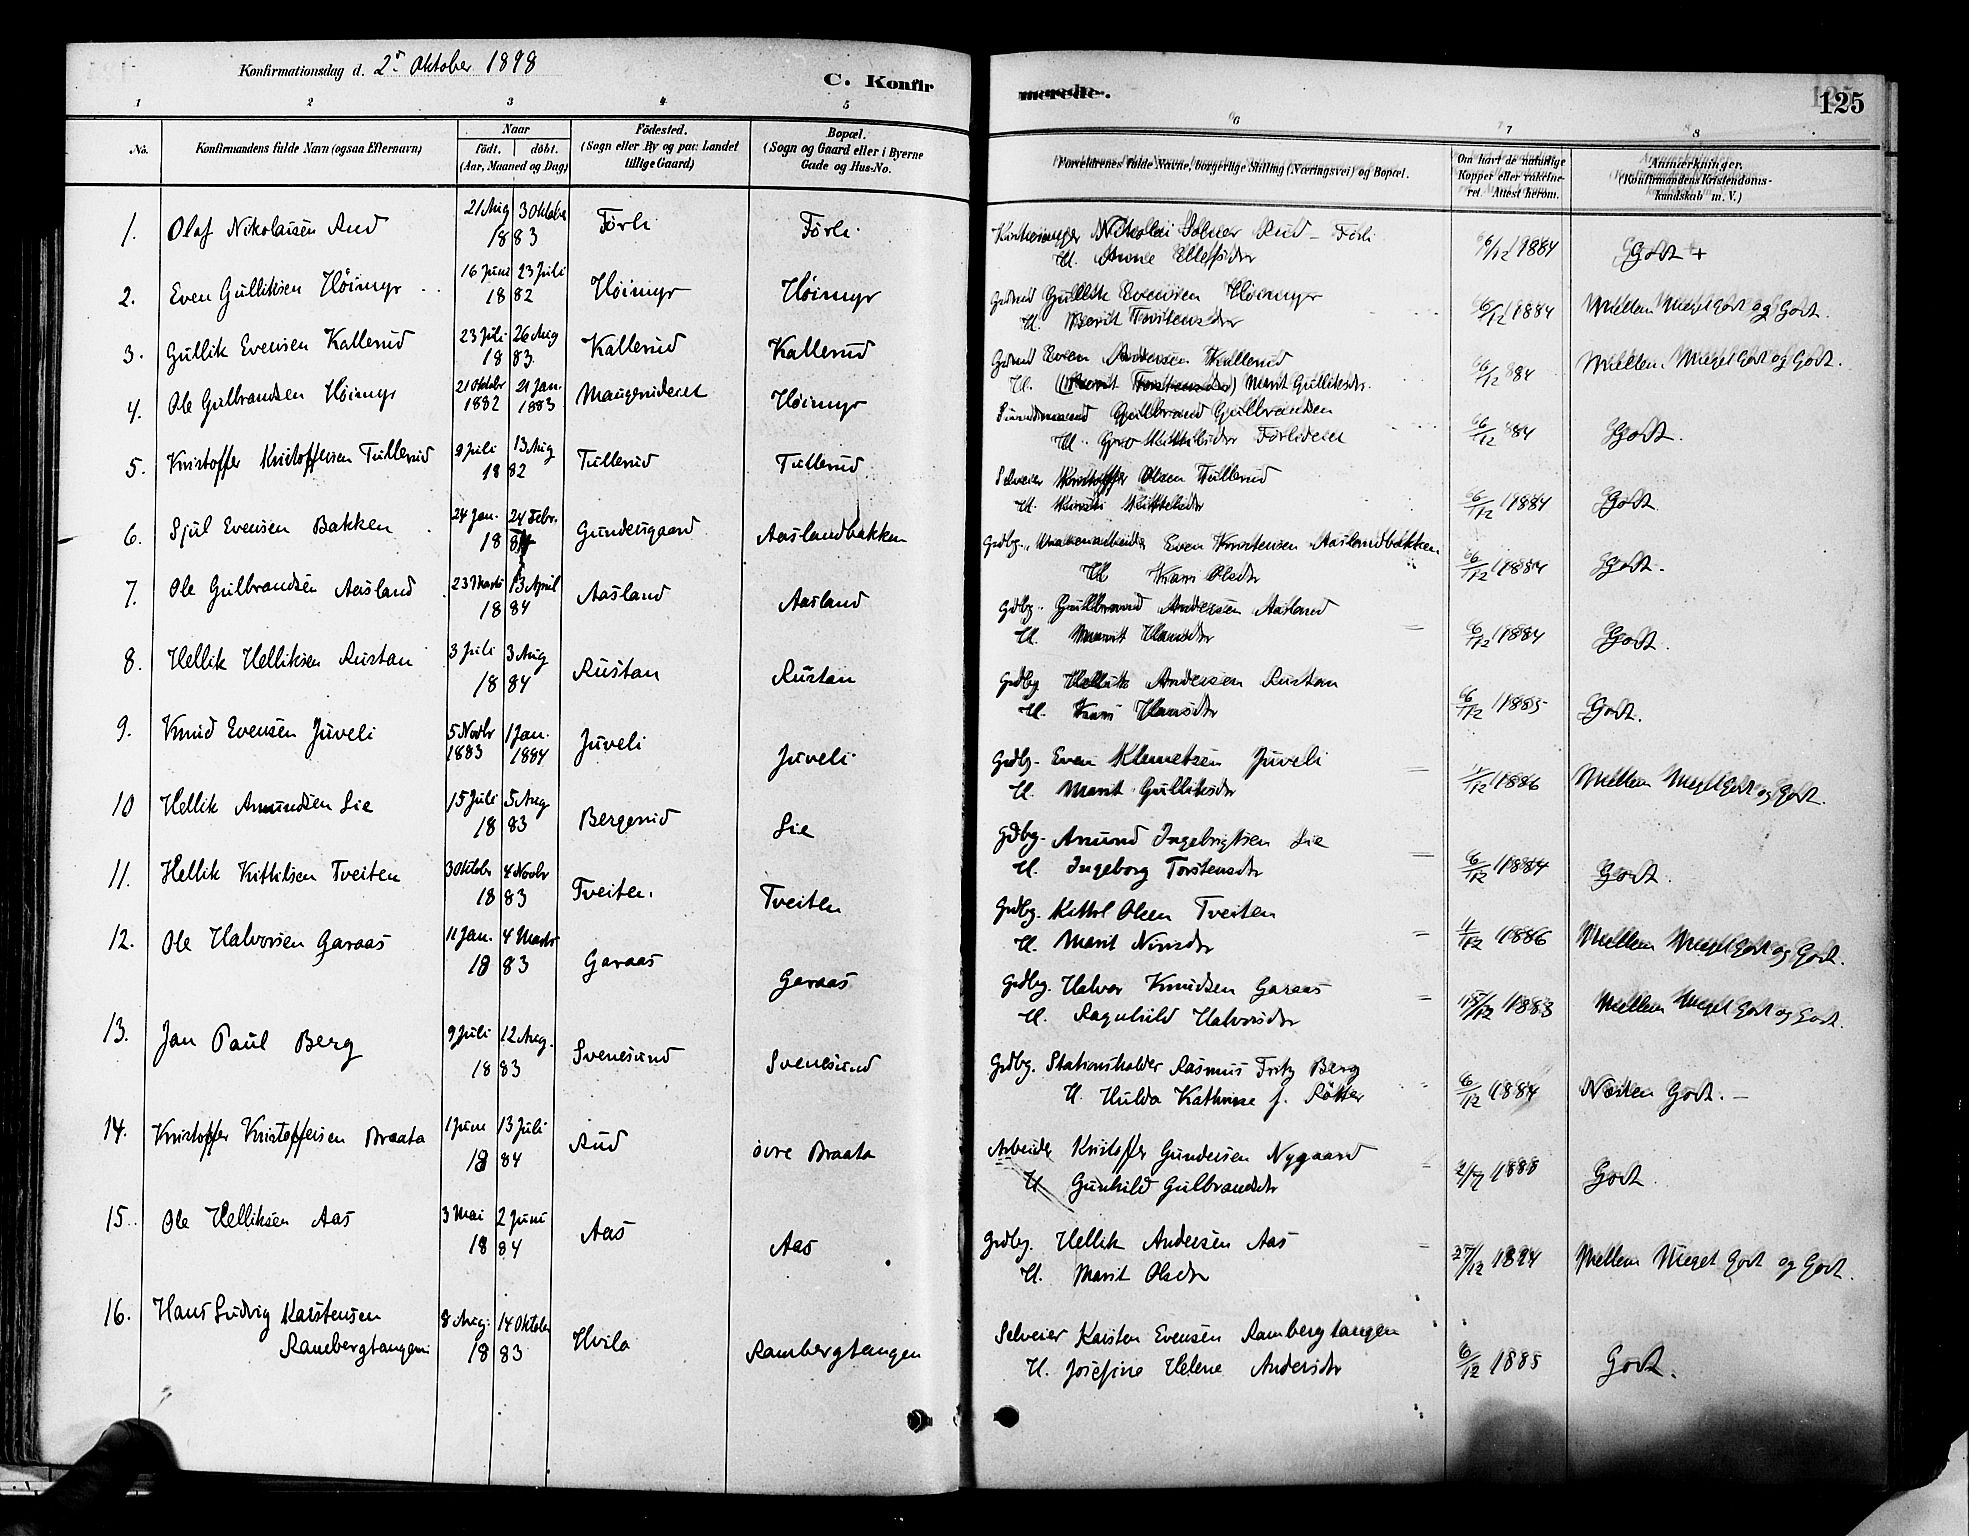 Konfirmationsdag d. 2den Oktober 1898
C. Konfir merede. 125
1 2 3 4 5 6 7 8
No. Konfirmandens fulde Navn (ogsaa Efternavn) Naar födt. döbt. (Aar, Maaned og Dag) Födested. (Sogn eller By og paa Landet tillige Gaard) Bopæl. (Sogn og Gaard eller i Byerne Gade og Hus-No. Forældrenes fulde Navne, borgerlige Stilling (Næringsvei) og Bopæl. Om havt de naturlige Kopper eller vakcineret. Attest herom. Anmærkninger. (Konfirmandens Kristendomskundskab m. V.)
1. Olaf Nikolaisen Rud 21 Aug 3 Oktober 1883 Førli Førli Nikolai Rud – Førli
H. Anne Ellefsdtr 6/12 1884 Godt +
2. Even Gulliksen Høimyr 16 Juni 23 Juli 1882 Høimyr Høimyr Grdmd Gullik Evensen Høimyr
H. Berit Torstensdtr 6/12 1884 Mellem Meget Godt og Godt.
3. Gullik Evensen Kallerud 23 Juli 26 Aug 1883 Kallerud Kallerud Grdmd Even Andersen Kallerud
H. (Torstensdtr) Marit Gulliksdtr. 6/12 84 Mellem Meget Godt og Godt.
4. Ole Gulbrandsen Høimyr 21 Oktobr 1882 21 Jan. 1883 Maugerudeiet Høimyr Gulbrand Gulbrandsen
H. Gro Kittilsdtr Førlideiet 6/12 84 Godt.
5. Kristoffer Kristoffersen Tullerud 9 Juli 13 Aug 1882 Tullerud Tullerud Selveier Kristoffer Olsen Tullerud
H. Kirsti Kittelsdtr 6/12 1884 Godt.
6. Sjul Evensen Bakken 24 Jan. 24 Febr. 1884 Gundersgaard Aaslandbakken Grdbg. Even Kristensen Aaslandbakken
H Kari Olsdtr 6/12 1884 Godt.
7. Ole Gulbrandsen Aasland 23 Marts 13 April 1884 Aasland Aasland Gdbg. Gullbrand Andersen Aasland
H. Marit Hansdtr 6/12 1884 Godt.
8. Hellik Helliksen Rustan 3 Juli 3 Aug 1884 Rustan Rustan Grdbg Hellik Andersen Rustan
H. Kari Hansdtr 6/12 1885 Godt.
9. Knud Evensen Juveli 5 Novbr 1883 1 Jan. 1884 Juveli Juveli Grdbg. Even Klemetsen Juveli
H. Marit Gulliksdtr 1/12 1886 Mellem Meget Godt og Godt.
10 Hellik Amundsen Lie 15 Juli 5 Aug 1883 Bergerud Lie Gdbg. Amund Ingebrigtsen Lie
H. Ingeborg Torstensdtr 6/12 1884 Godt.
11. Hellik Kittilsen Tveiten 3 Oktobr 4 Novbr 1883 Tveiten. Tveiten Grdbg. Kittil Olsen Tveiten
H. Marit Nirisdtr 1/12 1886 Mellem Meget Godt og Godt.
12. Ole Halvorsen Garaas 11 Jan. 4 Marts 1883 Garaas Garaas Grdbg. Halvor Knudsen Garaas
H. Ragnhild Halvorsdtr 15/12 1883 Mellem Meget Godt og Godt.
13. Jan Paul Berg 9 Juli 12 Aug. 1883 Svenesund Svenesund Grdbg. Stationsholder Rasmus Fritz Berg
H. Hulda Kathrine f. Røtter 6/12 1884 Næsten Godt. –
14. Kristoffer Kristoffersen Braata 1 Juni 13 Juli 1884 Rud övre Braata Arbeider Kristoffer Gundersen Nygaard
H Gunhild Gulbrandsdtr 2/7 1888 Godt
15. Ole Helliksen Aas 3 Mai 2 Juni 1884 Aas Aas Grdbg. Hellik Andersen Aas
H. Marit Olsdtr 27/12 1894 Mellem Meget Godt og Godt.
16. Hans Ludvig Karstensen Rambergtangen 8 Aug. 14 Oktober 1883 Hvila Rambergtangen Selveier Karsten Evensen Rambergtangen
H. Josefine Helene Andersdtr 6/12 1885 Godt.